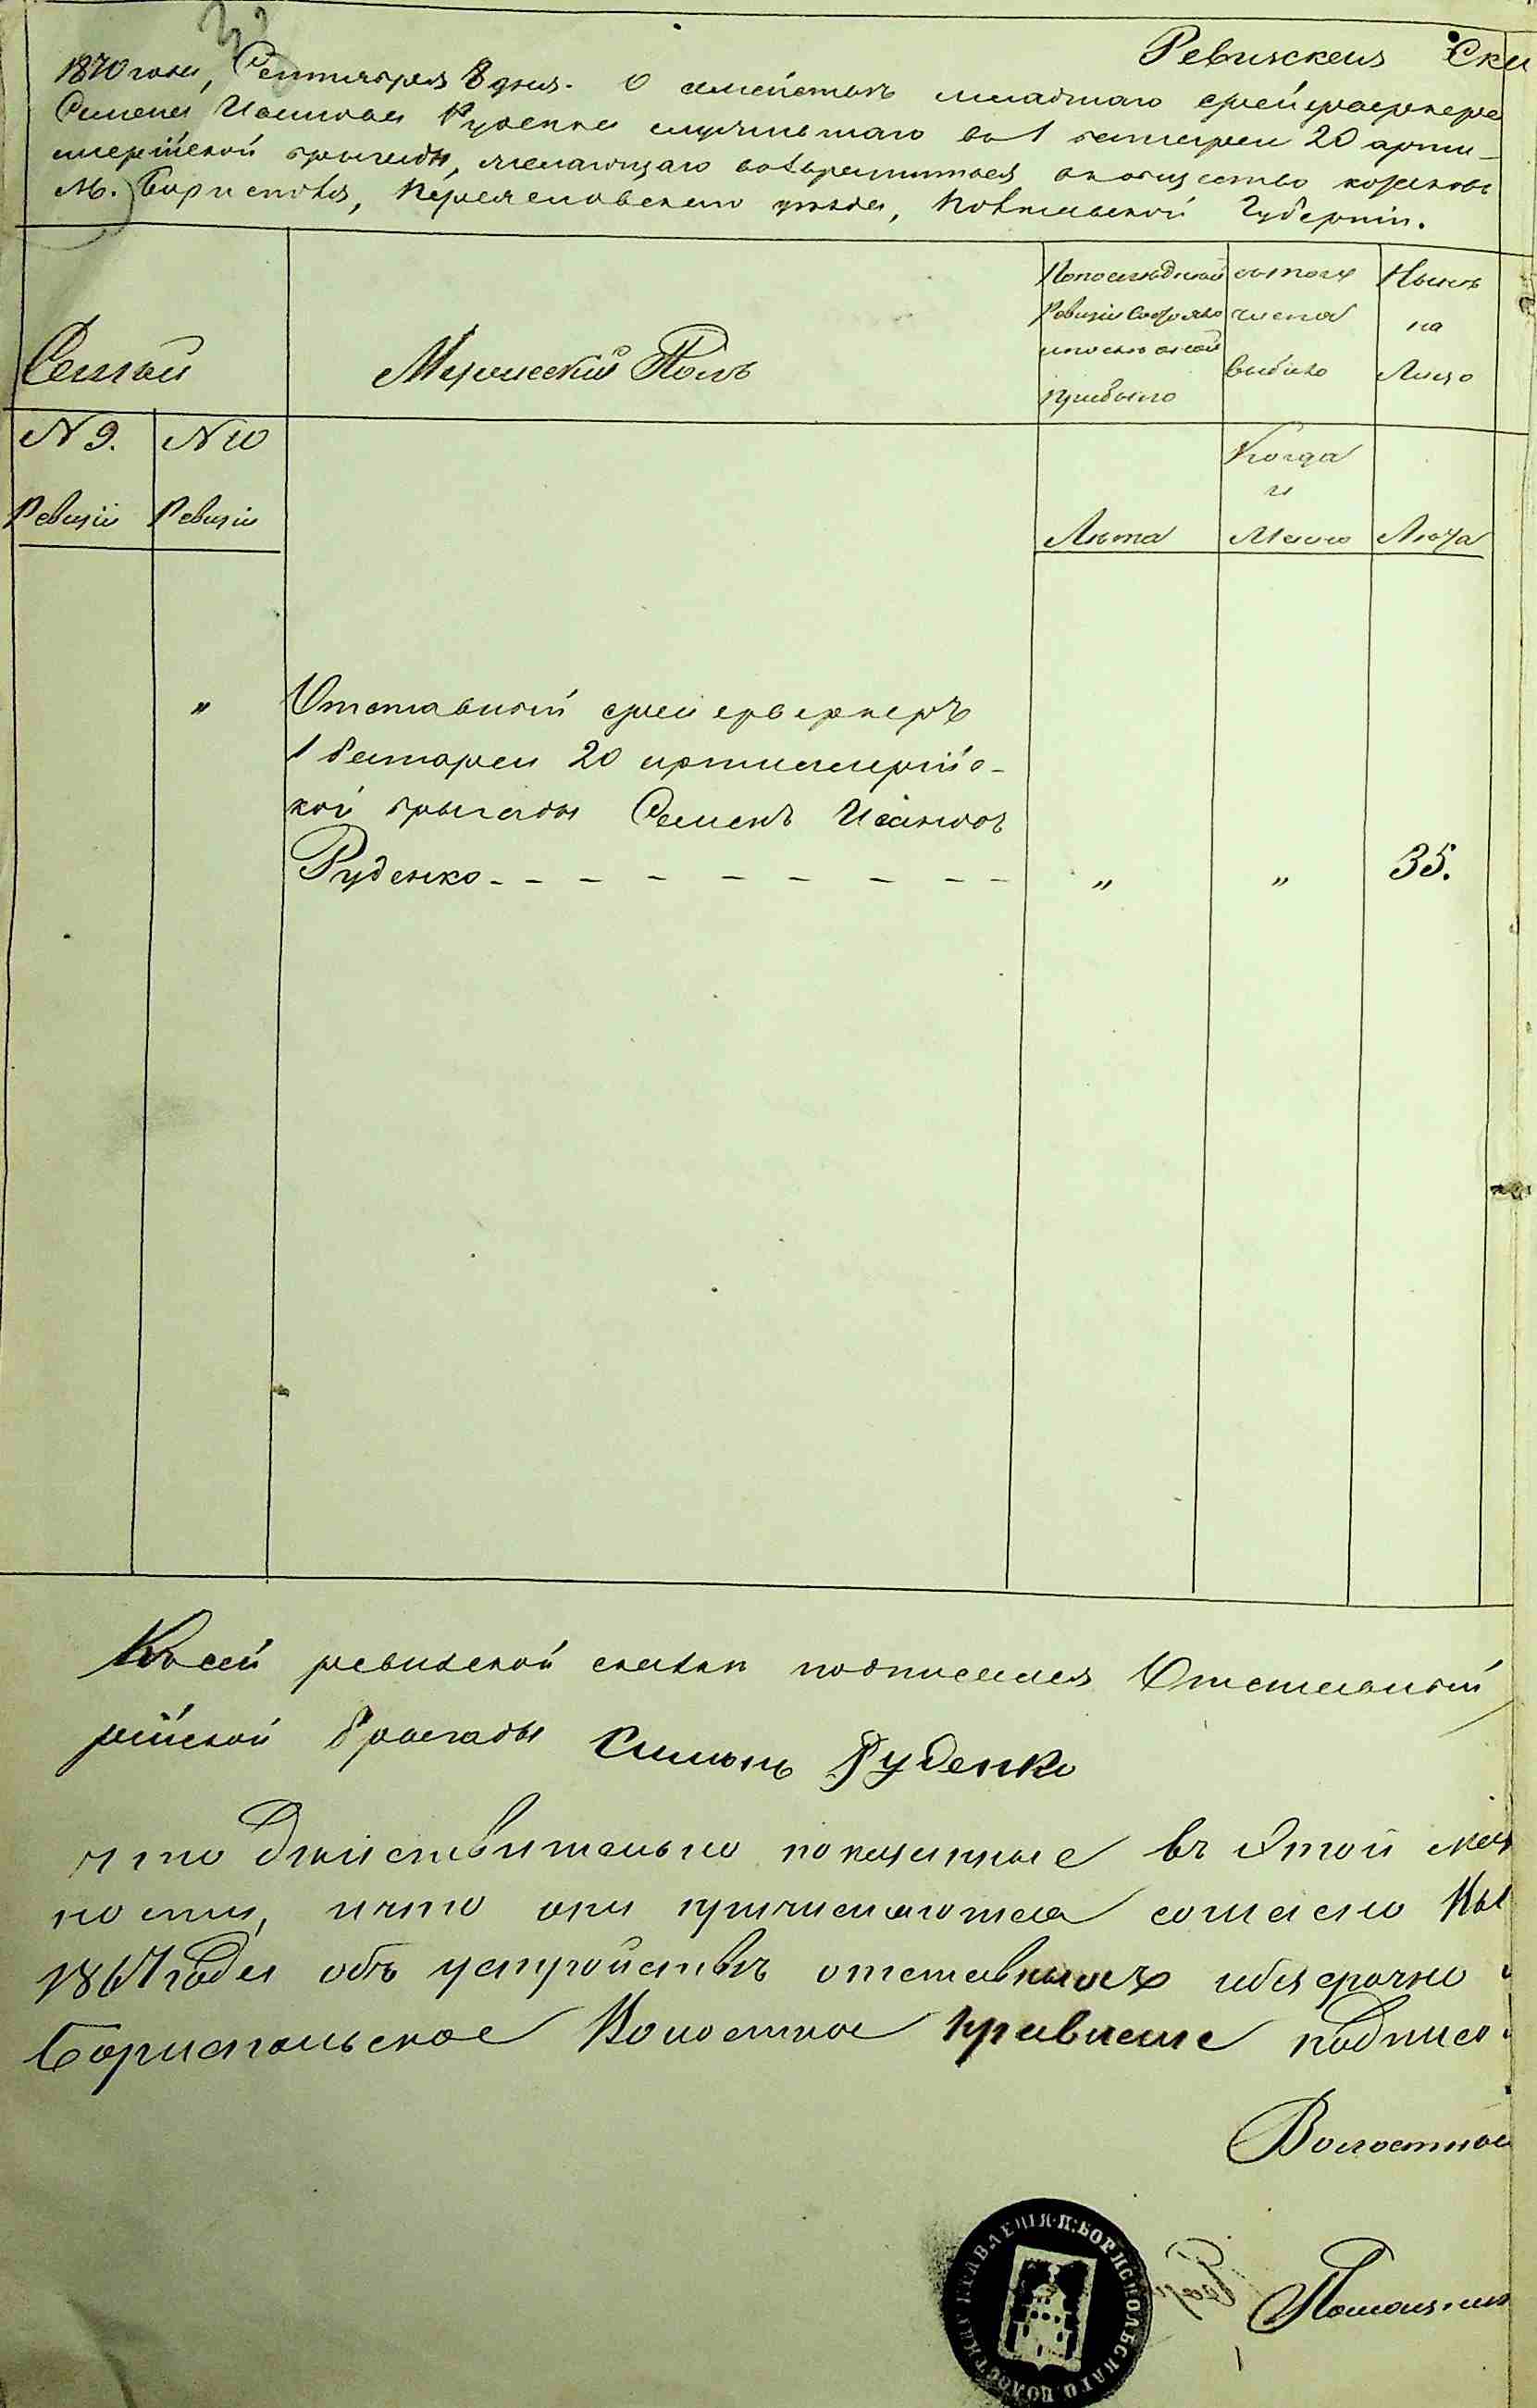 Ревизская Ска
1870 года, Сентября 8 дня. О семействе младшаго фейерверкера
Семена Иванова Руденка служившаго во 1 батареи 20 артил-
лерійской бригады, желающаго возвратиться в общество козаков
М. Борисполя, Переяславскаго уезда, Полтавской Губерніи.
Семьи
Мужескій Полъ
По последней Ревизіи Состояло или после оной прибыло
изъ того числа выбыло
Ныне на Лицо
№ 9. Ревизіи
№ 10 Ревизіи
Лета
Когда и
Лета
„ Отставный фейерверкеръ
1 батареи 20 артиллерійс-
кой бригады Семенъ Ивановъ
Руденко - - - - - - - - - „ „ 35.
К сей ревизской сказки подписался Отставный
рійской бригады Семенъ Руденко
что действительно показанные въ этой
ности, и что они причисляются согласно
1867 года объ устройстве отставныхъ и безсрочно
Бориспольское Волостное Правление подписо
Волостной
Помощник
ПРАВЛЕНІЯ · П: БОРИСПОЛЬСКАГО ВОЛОСТНАГО